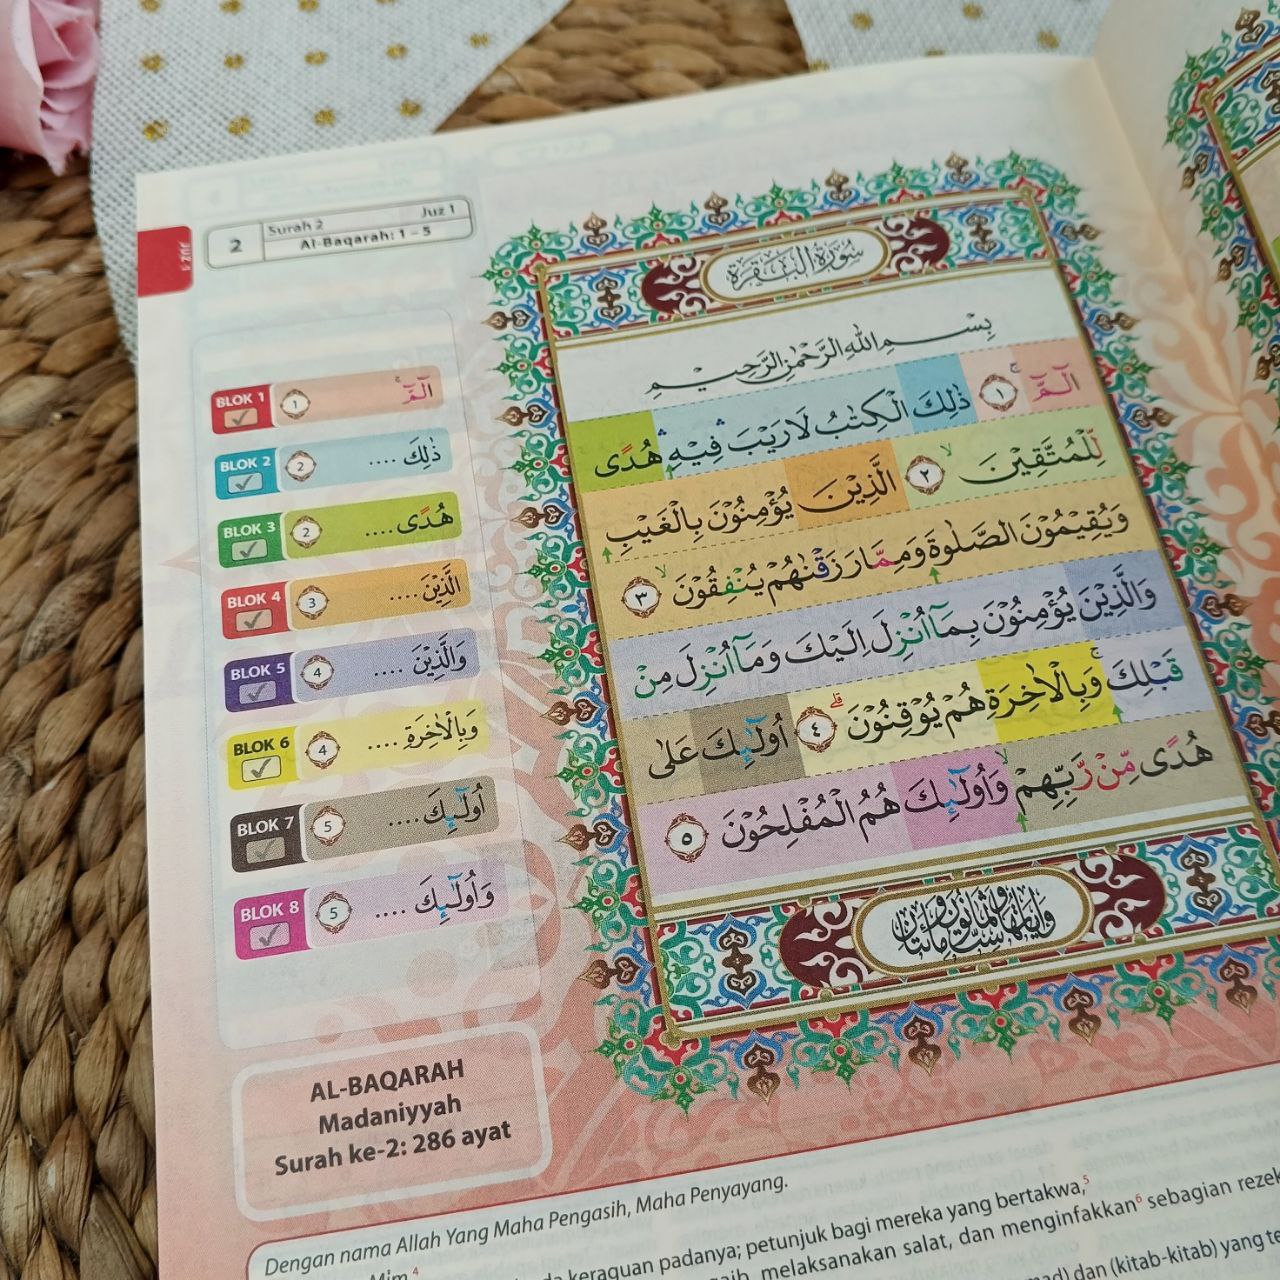 2
Surah 2
Juz 1
Al-Baqarah: 1 – 5
JUZ 1
BLOK 1
1
الٓمّٓ ۚ
BLOK 2
2
ذٰلِكَ ....
BLOK 3
2
هُدًى ....
BLOK 4
3
الَّذِيْنَ ....
BLOK 5
4
وَالَّذِيْنَ ....
BLOK 6
4
وَبِالْاٰخِرَةِ ....
BLOK 7
5
اُولٰۤىِٕكَ ....
BLOK 8
5
وَاُولٰۤىِٕكَ ....
AL-BAQARAH
Madaniyyah
Surah ke-2: 286 ayat
سُوْرَةُ الْبَقَرَةِ
بِسْمِ اللّٰهِ الرَّحْمٰنِ الرَّحِيْمِ
الٓمّٓ ۚ ١ ذٰلِكَ الْكِتٰبُ لَا رَيْبَ ۛ فِيْهِ ۛ هُدًى
لِّلْمُتَّقِيْنَ ۙ ٢ الَّذِيْنَ يُؤْمِنُوْنَ بِالْغَيْبِ
وَيُقِيْمُوْنَ الصَّلٰوةَ وَمِمَّا رَزَقْنٰهُمْ يُنْفِقُوْنَ ۙ ٣
وَالَّذِيْنَ يُؤْمِنُوْنَ بِمَآ اُنْزِلَ اِلَيْكَ وَمَآ اُنْزِلَ مِنْ
قَبْلِكَ ۚ وَبِالْاٰخِرَةِ هُمْ يُوْقِنُوْنَ ۗ ٤ اُولٰۤىِٕكَ عَلٰى
هُدًى مِّنْ رَّبِّهِمْ ۙ وَاُولٰۤىِٕكَ هُمُ الْمُفْلِحُوْنَ ٥
Dengan nama Allah Yang Maha Pengasih, Maha Penyayang.
Mim.4
keraguan padanya; petunjuk bagi mereka yang bertakwa,5
melaksanakan salat, dan menginfakkan6 sebagian
dan (kitab-kitab) yang